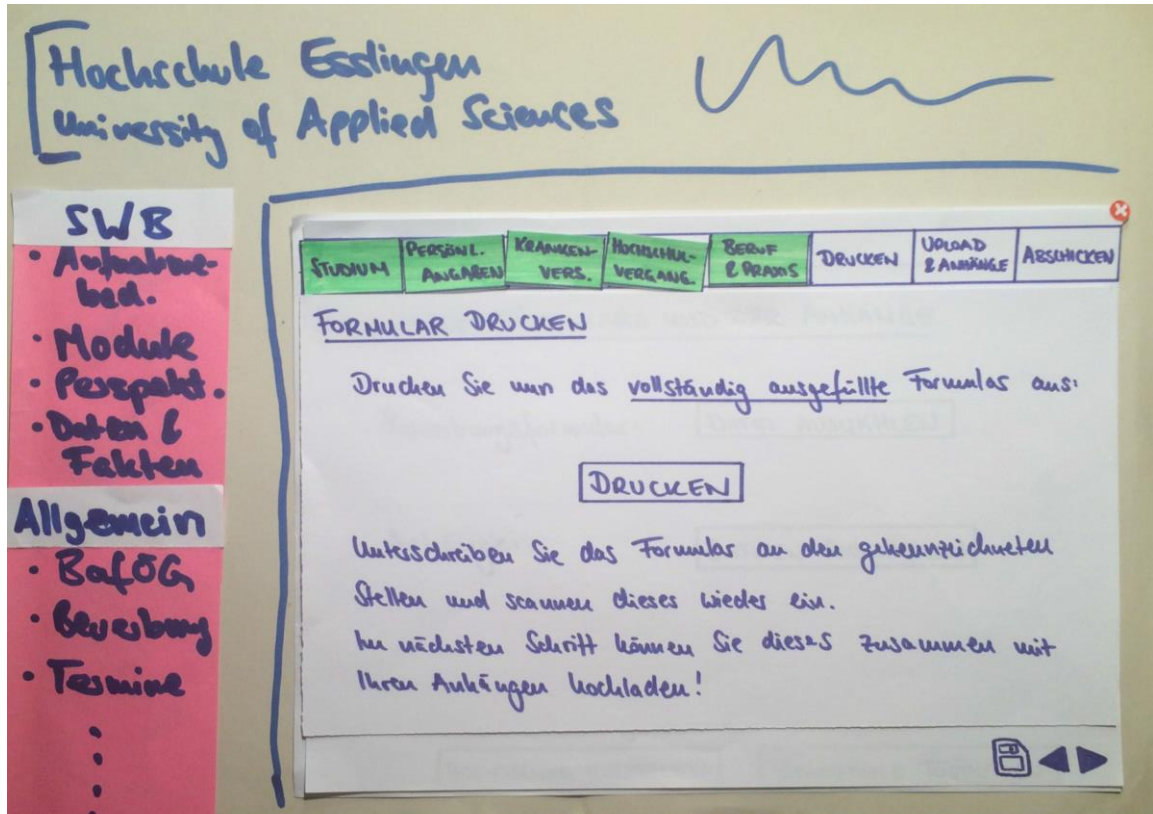 Hochschule Esslingen
University of Applied Sciences
SWB
• Aufnahme-
bed.
• Module
• Perspekt.
• Daten &
Fakten
Allgemein
• BafÖG
• Bewerbung
• Termine
STUDIUM
PERSÖNL.
ANGABEN
KRANKEN-
VERS.
HOCHSCHUL-
VERGANG.
BERUF
& PRAXIS
DRUCKEN
UPLOAD
& ANHÄNGE
ABSCHICKEN
FORMULAR DRUCKEN
Drucken Sie nun das vollständig ausgefüllte Formular aus:
DRUCKEN
Unterschreiben Sie das Formular an den gekennzeichneten
Stellen und scannen dieses wieder ein.
Im nächsten Schritt können Sie dieses zusammen mit
Ihren Anhängen hochladen!